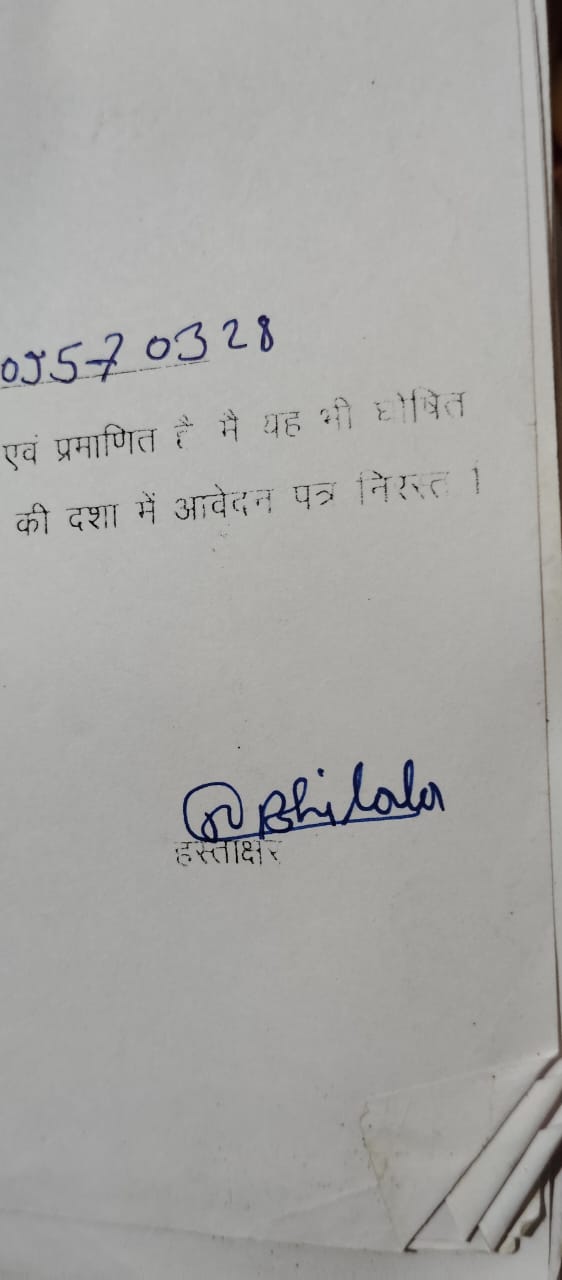 05570328
एवं प्रमाणित है मै यह भी घोषित
की दशा में आवेदन पत्र निरस्त ।
Bhilala
हस्ताक्षर